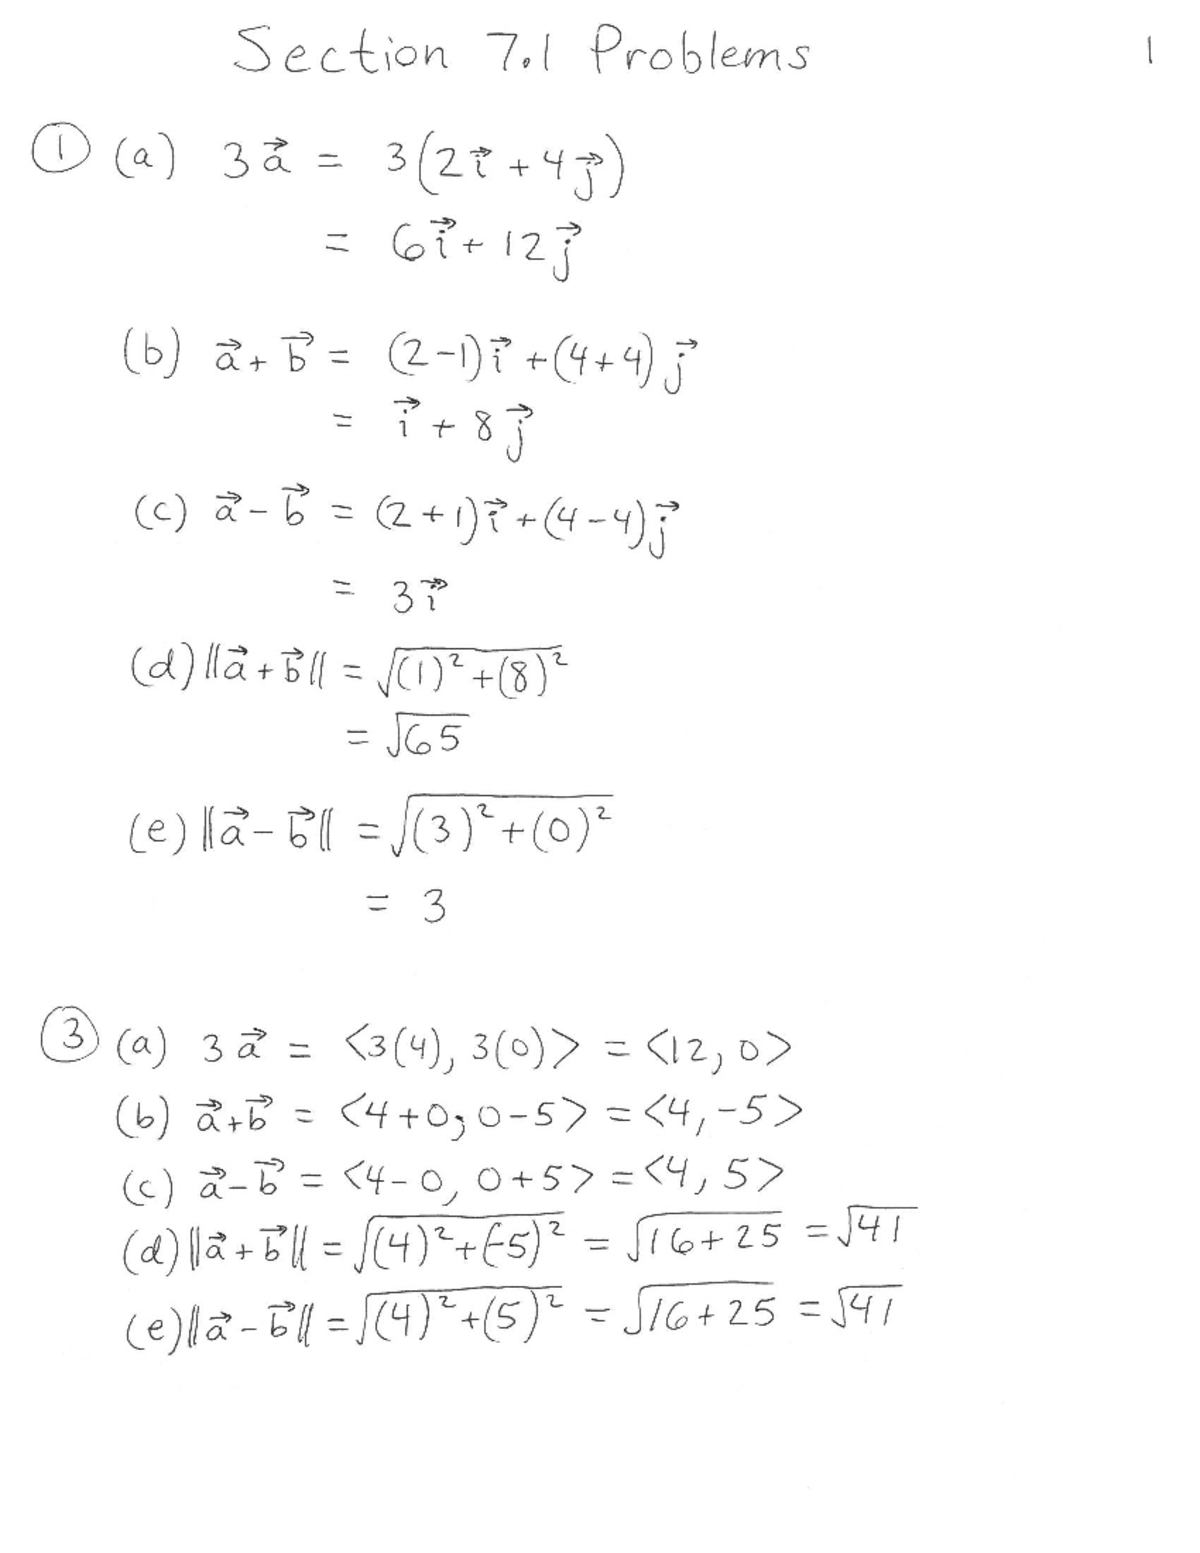 Section 7.1 Problems
1
① (a) 3a⃗ = 3(2i⃗ + 4j⃗)
= 6i⃗ + 12j⃗
(b) a⃗ + b⃗ = (2-1)i⃗ + (4+4)j⃗
= i⃗ + 8j⃗
(c) a⃗ - b⃗ = (2+1)i⃗ + (4-4)j⃗
= 3i⃗
(d) ||a⃗ + b⃗|| = √((1)² + (8)²)
= √65
(e) ||a⃗ - b⃗|| = √((3)² + (0)²)
= 3
③ (a) 3a⃗ = <3(4), 3(0)> = <12, 0>
(b) a⃗ + b⃗ = <4+0, 0-5> = <4, -5>
(c) a⃗ - b⃗ = <4-0, 0+5> = <4, 5>
(d) ||a⃗ + b⃗|| = √((4)² + (-5)²) = √(16+25) = √41
(e) ||a⃗ - b⃗|| = √((4)² + (5)²) = √(16+25) = √41